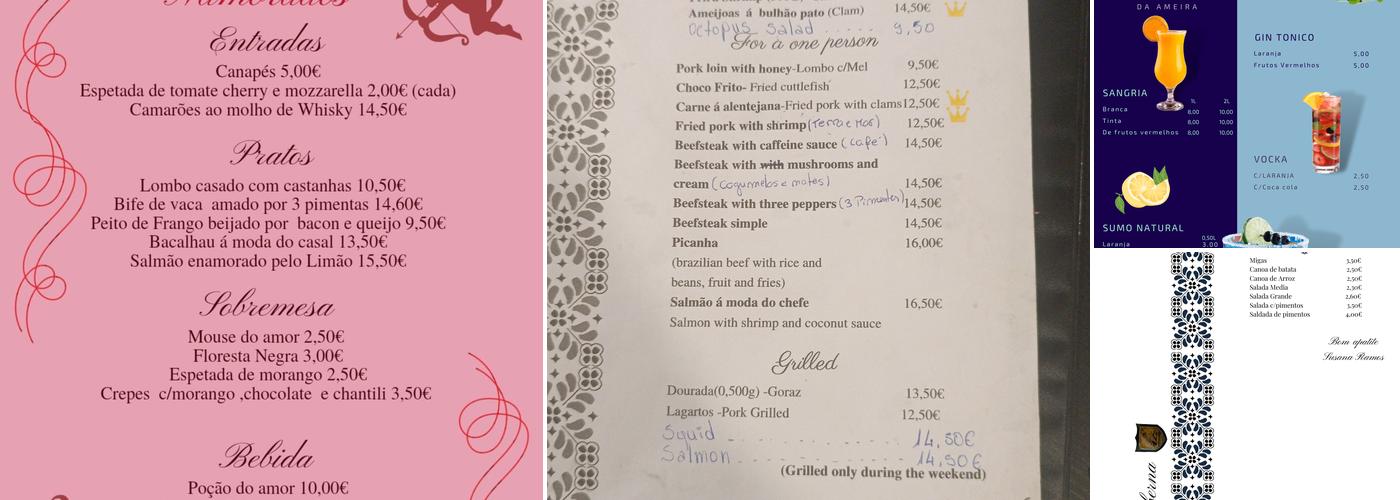 Namorados
Entradas
Canapés 5,00€
Espetada de tomate cherry e mozzarella 2,00€ (cada)
Camarões ao molho de Whisky 14,50€
Pratos
Lombo casado com castanhas 10,50€
Bife de vaca amado por 3 pimentas 14,60€
Peito de Frango beijado por bacon e queijo 9,50€
Bacalhau á moda do casal 13,50€
Salmão enamorado pelo Limão 15,50€
Sobremesa
Mouse do amor 2,50€
Floresta Negra 3,00€
Espetada de morango 2,50€
Crepes c/morango ,chocolate e chantili 3,50€
Bebida
Poção do amor 10,00€
Ameijoas á bulhão pato (Clam) 14,50€
Octopus Salad ..... 9,50
For a one person
Pork loin with honey-Lombo c/Mel 9,50€
Choco Frito- Fried cuttlefish 12,50€
Carne á alentejana-Fried pork with clams 12,50€
Fried pork with shrimp (Terra e Mar) 12,50€
Beefsteak with caffeine sauce (café) 14,50€
Beefsteak with with mushrooms and
cream (cogumelos e natas) 14,50€
Beefsteak with three peppers (3 Pimentas) 14,50€
Beefsteak simple 14,50€
Picanha 16,00€
(brazilian beef with rice and
beans, fruit and fries)
Salmão á moda do chefe 16,50€
Salmon with shrimp and coconut sauce
Grilled
Dourada(0,500g) -Goraz 13,50€
Lagartos -Pork Grilled 12,50€
Squid - - - - - - 14,50€
Salmon - - - - - - 14,50€
(Grilled only during the weekend)
DA AMEIRA
SANGRIA
1L 2L
Branca 8,00 10,00
Tinta 8,00 10,00
De frutos vermelhos 8,00 10,00
SUMO NATURAL
0,50L
Laranja 3.00
GIN TONICO
Laranja 5,00
Frutos Vermelhos 5,00
VOCKA
C/LARANJA 2,50
C/Coca cola 2,50
Migas 3,50€
Canoa de batata 2,50€
Canoa de Arroz 2,50€
Salada Media 2,30€
Salada Grande 2,60€
Salada c/pimentos 3,50€
Saldada de pimentos 4,00€
Bom apatite
Susana Ramos